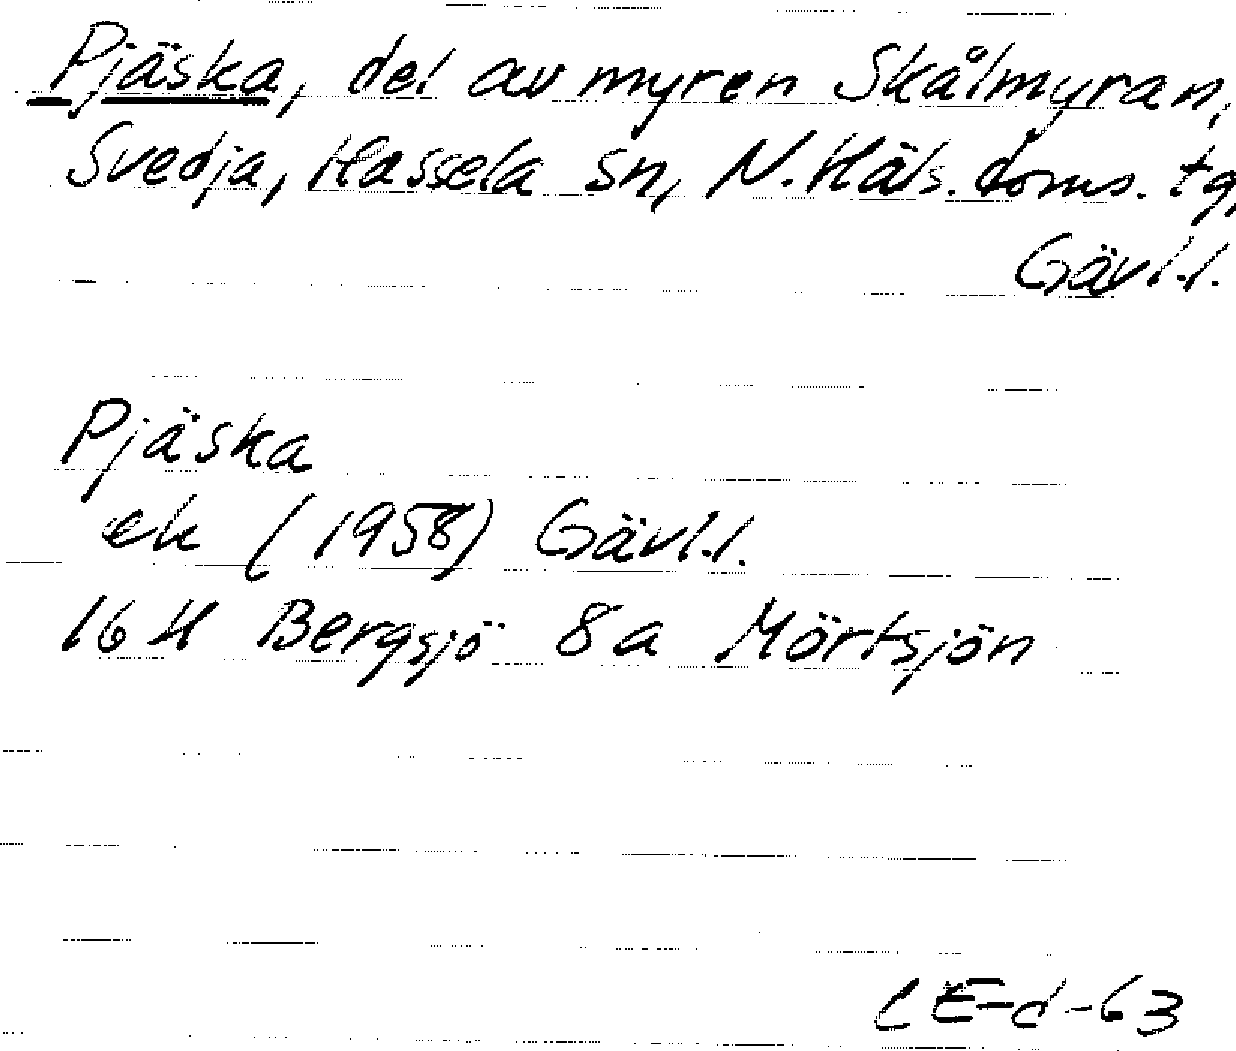 Pjäska, del av myren Skålmyran,
Svedja, Hassela sn, N. Häls. doms. tg,
Gävl.l.
Pjäska
ek (1958) Gävl.l.
16 H Bergsjö 8a Mörtsjön
CE-d-63